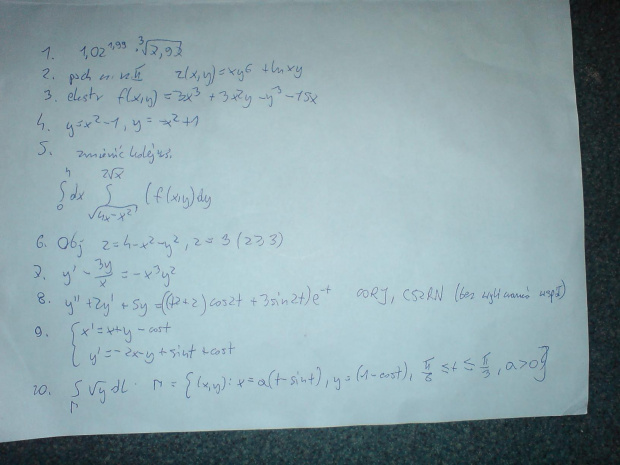 1. 1,02^1,99 · ∛2,92
2. poch cz. rz II z(x,y) = xy^6 + ln xy
3. ekstr f(x,y) = 3x³ + 3x²y - y³ - 15x
4. y = x² - 1, y = -x² + 1
5. zmienić kolejn.
∫₀⁴ dx ∫_{√(4x-x²)}^{2√x} (f(x,y) dy
6. Obj z = 4 - x² - y², z = 3 (z ≥ 3)
7. y' - 3y/x = -x³y²
8. y'' + 2y' + 5y = ((t²+2) cos2t + 3 sin2t) e^-t OORJ, CSRN (bez wyliczania wspł)
9. { x' = x + y - cost
y' = -2x - y + sint + cost
10. ∫_Γ √y dL. Γ = {(x,y): x = a(t - sint), y = (1 - cost), π/6 ≤ t ≤ π/3, a > 0}